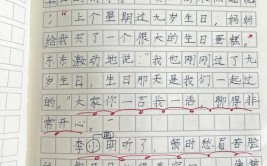 "上个星期过九岁生日，妈妈
给我买了一个很大的生日蛋糕。"
东东激动地记："我也刚刚过了九
岁生日，生日那天是我们一起过
的。"大家你一言我一语，聊得非
常开心。
李小明听了，顿时愁眉苦脸